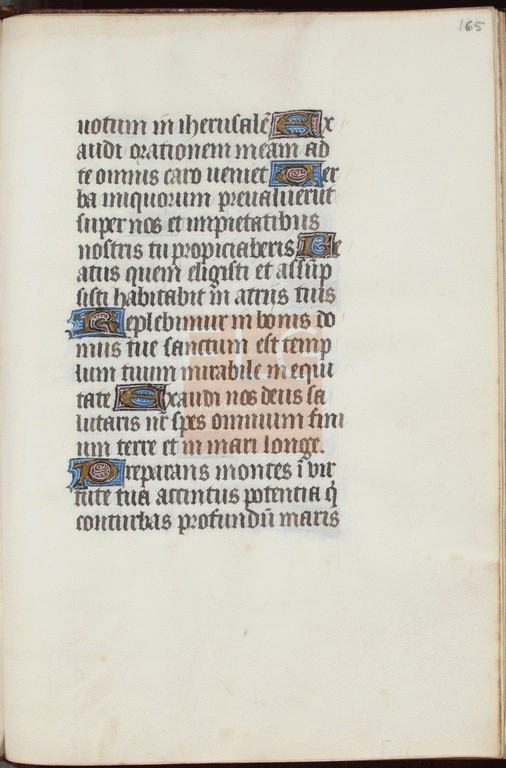 165
uotum in iherusalē Ex
audi orationem meam ad
te omnis caro ueniet Ver
ba iniquorum preualuerūt
super nos et impietatibus
nostris tu propiciaberis Be
atus quem eligisti et assūp
sisti habitabit in atriis tuis
Replebimur in bonis do
mus tue sanctum est temp
lum tuum mirabile in equi
tate Exaudi nos deus sa
lutaris nr̄ spes omnium fini
um terre et in mari longe.
Preparans montes ī vir
tute tua accintus potentia q̄
conturbas profundū maris